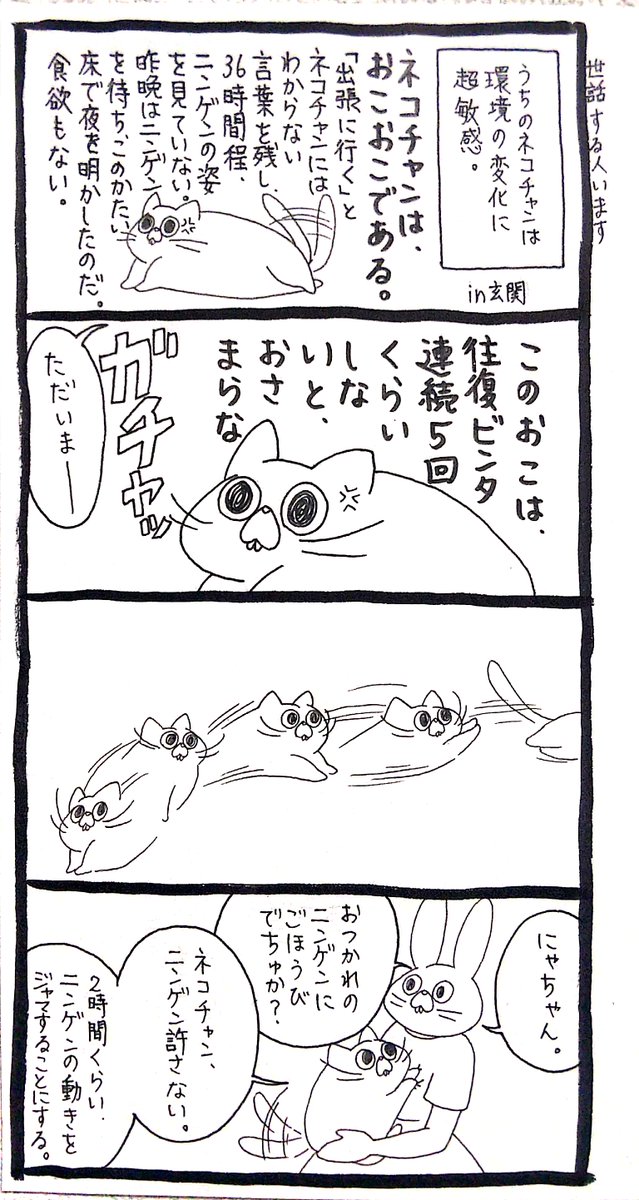 世話する人います
うちのネコチャンは
環境の変化に
超敏感。
in玄関
ネコチャンは、
おこおこである。
「出張に行く」と
ネコチャンには
わからない
言葉を残し、
36時間程、
ニンゲンの姿
を見ていない。
昨晩はニンゲン
を待ち、このかたい
床で夜を明かしたのだ。
食欲もない。
このおこは、
往復ビンタ
連続5回
くらい
しな
いと、
おさ
まらな
ガチャッ
ただいまー
にゃちゃん。
おつかれの
ニンゲンに
ごほうび
でちゅか?
ネコチャン、
ニンゲン許さない。
2時間くらい、
ニンゲンの動きを
ジャマすることにする。